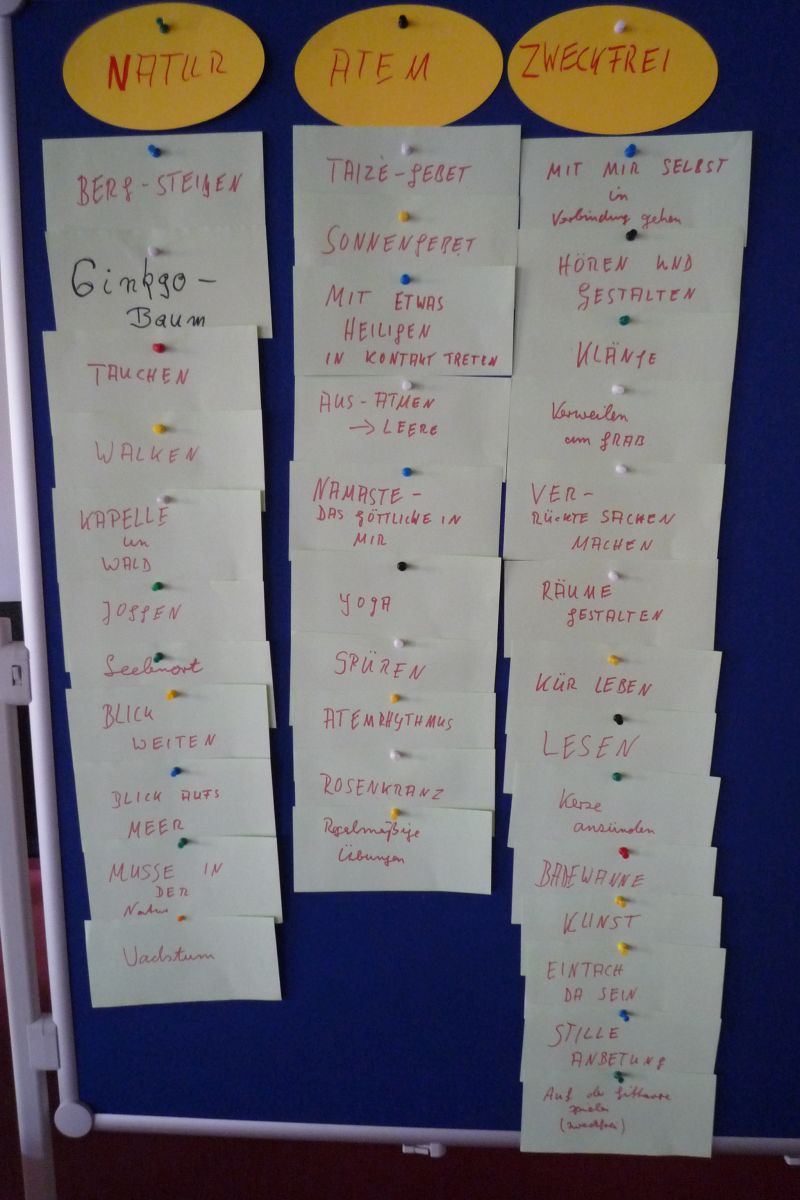 NATUR
BERG-STEIGEN
Ginkgo-
Baum
TAUCHEN
WALKEN
KAPELLE
im
WALD
JOGGEN
Seelenort
BLICK
WEITEN
BLICK AUFS
MEER
MUSSE IN
DER
Natur
Wachstum
ATEM
TAIZÈ-GEBET
SONNENGEBET
MIT ETWAS
HEILIGEN
IN KONTAKT TRETEN
AUS-ATMEN
→ LEERE
NAMASTE-
DAS GÖTTLICHE IN
MIR
YOGA
SPÜREN
ATEMRHYTHMUS
ROSENKRANZ
Regelmäßige
Übungen
ZWECKFREI
MIT MIR SELBST
in
Verbindung gehen
HÖREN UND
GESTALTEN
KLÄNGE
Verweilen
am GRAB
VER-
RÜCKTE SACHEN
MACHEN
RÄUME
GESTALTEN
KÜR LEBEN
LESEN
Kerze
anzünden
BADEWANNE
KUNST
EINFACH
DA SEIN
STILLE
ANBETUNG
Auf der Gitarre
spielen
(zweckfrei)